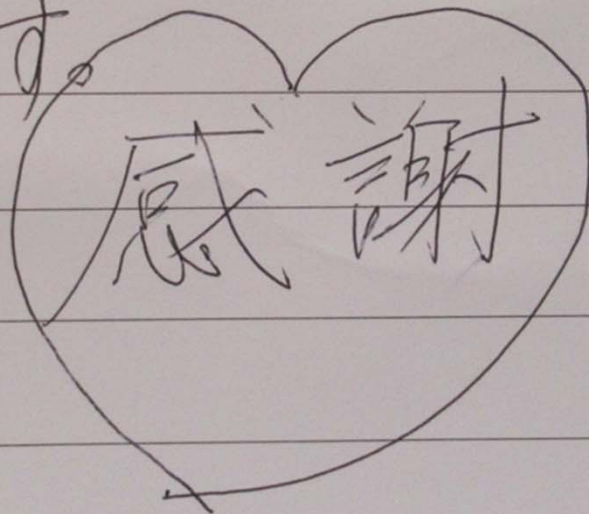 す。
感謝